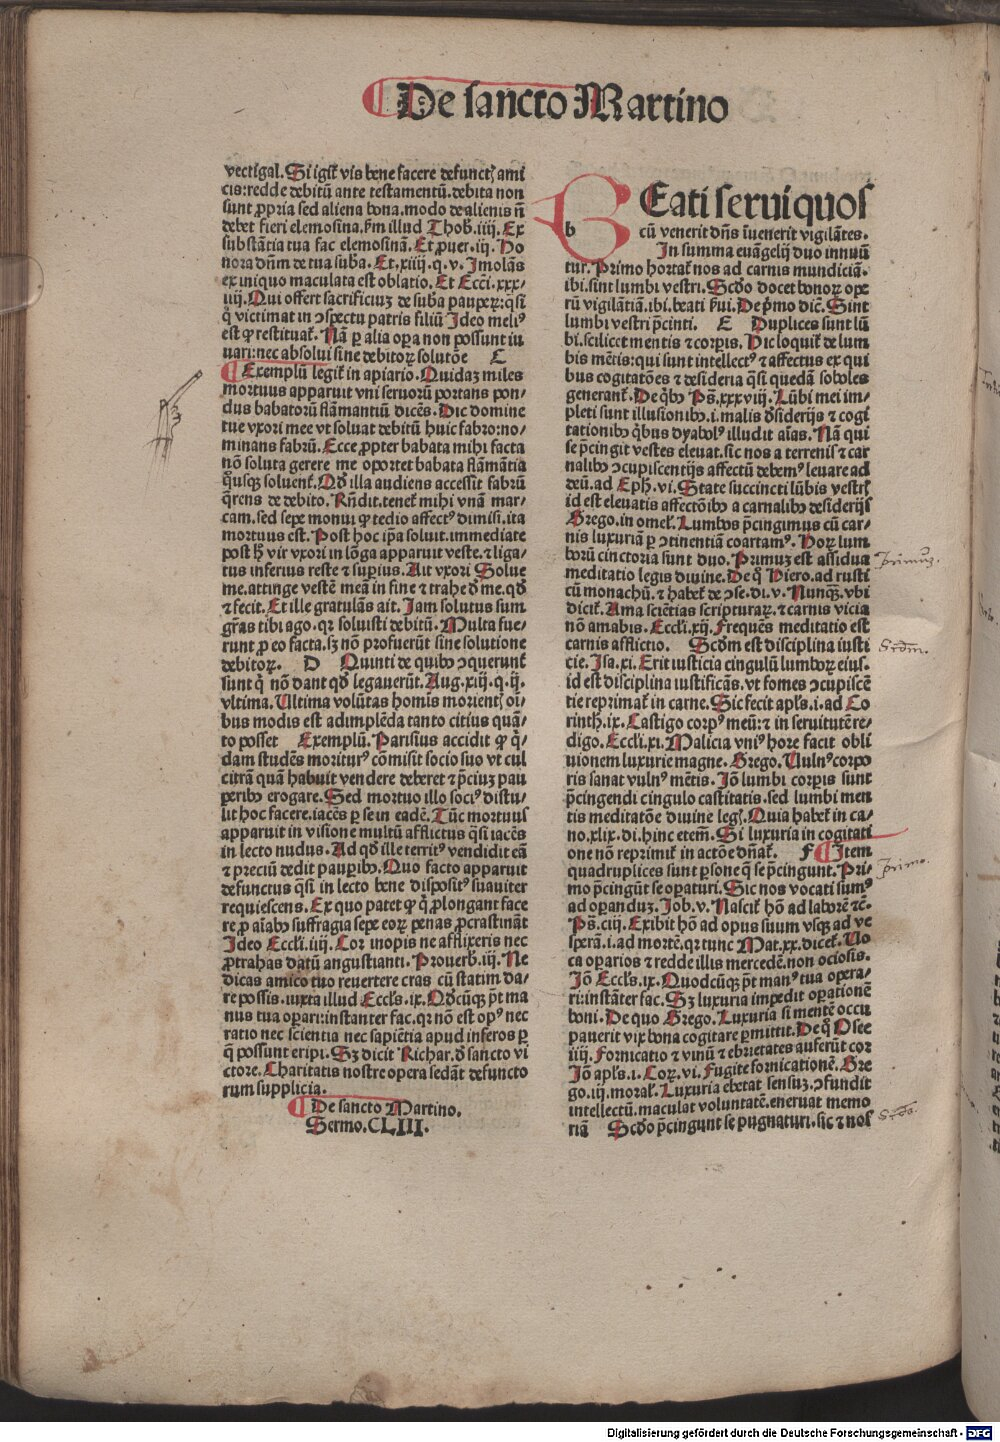 De sancto Martino
vectigal. Si igit᷑ vis bene facere defunctꝭ ami
cis: redde debitū ante testamentū. debita non
sunt ꝓpria sed aliena bona. modo de alienis ñ
debet fieri elemosina. ẜm illud Thob. iiij. Ex
substātia tua fac elemosinā. Et ꝓuer. iij. Ho
nora dñm de tua suba. Et. xiiij. q. v. Imolās
ex iniquo maculata est oblatio. Et Ecci. xxx-
iiij. Qui offert sacrificiuꝫ de suba pauperꝝ: q̄si
q̇ victimat in ɔspectu patris filiū Ideo meliꝰ
est ꝙ restituat᷑. Nā ꝑ alia oꝑa non possunt iu
uari: nec absolui sine debitoꝝ solutōe C
Exemplū legit᷑ in apiario. Quidaꝫ miles
mortuus apparuit vni seruorū portans pon-
dus babatorū flāmantiū dicēs. Dic domine
tue vxori mee vt soluat debitū huic fabro: no-
minans fabrū. Ecce ꝓpter babata mihi facta
nō soluta gerere me oportet babata flāmātia
q̇usqꝫ soluent᷑. Qd̓ illa audiens accessit fabrū
q̄rens de debito. Rñdit. tenet᷑ mihi vnā mar-
cam. sed sepe monui ꝙ tedio affectꝰ dimisi. ita
mortuus est. Post hoc ip̄a soluit. immediate
post h̓ vir vxori in lōga apparuit veste. ⁊ liga-
tus inferius reste ⁊ suꝑius. Ait vxori Solue
me. attinge vestē meā in fine ⁊ trahe d̓ me. qd̓
⁊ fecit. Et ille gratulās ait. Iam solutus sum
gr̄as tibi ago. qꝛ soluisti debitū. Multa fue-
runt ꝓ eo facta. sꝫ nō profuerūt sine solutione
debitoꝝ. D Quinti de quibꝰ ɔquerunt᷑
sunt q̇ nō dant qd̓ legauerūt. Aug. xiij. q. ij.
vltima. Ultima volūtas homīs morientꝭ oī-
bus modis est adimplēda tanto citius quā-
to posset Exemplū. Parisius accidit ꝙ q̇-
dam studēs moriturꝰ cōmisit socio suo vt cul
citrā quā habuit vendere deberet ⁊ p̄ciuꝫ pau
ꝑeribꝰ erogare. Sed mortuo illo sociꝰ distu-
lit hoc facere. iacēs ꝑ se in eadē. Tūc mortuus
apparuit in visione multū afflictus q̄si iacēs
in lecto nudus. Ad qd̓ ille territꝰ vendidit eā
⁊ preciū dedit pauꝑibꝰ. Quo facto apparuit
defunctus q̄si in lecto bene dispositꝰ suauiter
requiescens. Ex quo patet ꝙ q̇ ꝓlongant face
re ꝓ aīabꝰ suffragia sepe eoꝝ penas ꝓcrastināt
Ideo Eccli. iiij. Cor inopis ne afflixeris nec
ꝓtrahas datū angustianti. Prouerb̓. iij. Ne
dicas amico tuo reuertere cras cū statim da-
re possis. iuxta illud Eccl̓s. ix. Qd̓cūqꝫ p̄t ma
nus tua oꝑari: instanter fac. qꝛ non est opꝰ nec
ratio nec scientia nec sapiētia apud inferos ꝑ
q̄ possunt eripi. Sꝫ dicit Richar. d̓ sancto vi
ctore. Charitatis nostre opera sedāt defuncto
rum supplicia.
De sancto Martino.
Sermo. CLIII.
b
BEati serui quos
cū venerit dñs īuenerit vigilātes.
In summa euāgelij duo innuū
tur. Primo hortat᷑ nos ad carnis mundiciā.
ibi. sint lumbi vestri. Scd̓o docet bonoꝝ ope
rū vigilātiā. ibi. beati ẜui. De p̓mo dic̄. Sint
lumbi vestri p̄cinti. E Duplices sunt lū
bi. scilicet mentis ⁊ corꝑis. Hic loquit᷑ de lum
bis mētis: qui sunt intellectꝰ ⁊ affectus ex qui
bus cogitatōes ⁊ desideria q̄si quedā soboles
generant᷑. De q̇bꝰ Ps̄. xxxviij. Lūbi mei im-
pleti sunt illusionibꝰ. i. malis d̓siderijs ⁊ cogi
tationibꝰ q̇bus dyabolꝰ illudit aīas. Nā qui
se p̄cingit vestes eleuat. sic nos a terrenis ⁊ car
nalibꝰ ɔcupiscentijs affectū debemꝰ leuare ad
deū. ad Eph̓. vi. State succincti lūbis vestrꝭ
id est eleuatis affectōibꝰ a carnalibꝰ desiderijs
Grego. in omel̓. Lumbos p̄cingimus cū car-
nis luxuriā ꝑ ɔtinentiā coartamꝰ. Hoꝝ lum
borū cinctoria sunt duo. Primuꝫ est assidua
meditatio legis diuine. De q̊ Hiero. ad rusti
cū monachū. ⁊ habet᷑ de ɔse. di. v. Nunqꝫ. vbi
dicit᷑. Ama sciētias scripturaꝝ. ⁊ carnis vicia
nō amabis. Eccli. xij. Frequēs meditatio est
carnis afflictio. Scd̓m est disciplina iusti
cie. Isa. xi. Erit iusticia cingulū lumboꝝ eius.
id est disciplina iustificās. vt fomes ɔcupiscē
tie reprimat᷑ in carne. Sic fecit apl̓s. i. ad Co
rinth̓. ix. Castigo corpꝰ meū: ⁊ in seruitutē re-
digo. Eccli. xi. Malicia vniꝰ hore facit obli
uionem luxurie magne. Grego. Uulnꝰ corpo
ris sanat vulnꝰ mētis. Iō lumbi corꝑis sunt
p̄cingendi cingulo castitatis. sed lumbi men
tis meditatōe diuine legꝭ. Quia habet᷑ in ca-
no. xlix. di. hinc eteīm. Si luxuria in cogitati
one nōn reprimit᷑ in actōe dñat᷑. F Item
quadruplices sunt ꝑsone q̄ se p̄cingunt. Pri-
mo p̄cingūt se oꝑaturi. Sic nos vocati sumꝰ
ad oꝑanduꝫ. Iob. v. Nascit᷑ hō ad laborē ⁊c̄.
Ps̄. ciij. Exibit hō ad opus suum vsqꝫ ad ve
sperā. i. ad mortē. qꝛ tunc Mat. xx. dicet᷑. Uo
ca oꝑarios ⁊ redde illis mercedē. non ociosis.
Iō Eccl̓s. ix. Quodcūqꝫ p̄t manꝰ tua opera-
ri: instāter fac. Sꝫ luxuria impedit oꝑationē
boni. De quo Grego. Luxuria si mentē occu
pauerit vix bona cogitare ꝑmittit. De q̊ Osee
iiij. Fornicatio ⁊ vinū ⁊ ebrietates auferūt cor
Iō apl̓s. i. Coꝝ. vi. Fugite fornicationē. Gre
go. iij. moral̓. Luxuria ebetat sensuꝫ. ɔfundit
intellectū. maculat voluntatē. eneruat memo
riā Scd̓o p̄cingunt se pugnaturi. sic ⁊ nos
primuꝫ.
Scd̓m.
primo.
Scd̓o.
Digitalisierung gefördert durch die Deutsche Forschungsgemeinschaft - DFG